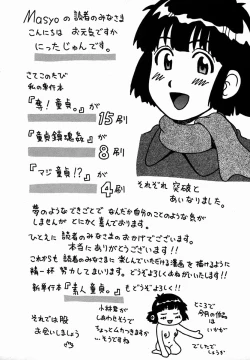 Masyoの読者のみなさま
こんにちは お元気ですか
にったじゅんです。
さてこのたび
私の単行本
『奪!童貞。』が
15刷
『童貞鎖・姦』が
8刷
『マジ童貞!?』が
4刷
それぞれ 突破と
あいなりました。
夢のようなできごとで なんだか自分のことのような気が
しませんが とにかく喜んでおります。
ひとえに 読者のみなさまのおかげでございます
本当にありがとうございます!!
これからも 読者のみなさまに楽しんでいただける漫画を描けるように
精一杯 努力してまいります。どうぞよろしくねがいいたします!!
新単行本『素人童貞。』もどうぞよろしく!!
それでは股
お会いしましょう
小林君が
しあわせそうで
ちょっとムカつきますが
そうですね
ところで
今月の作品は
いかが
でしたで
しょうか